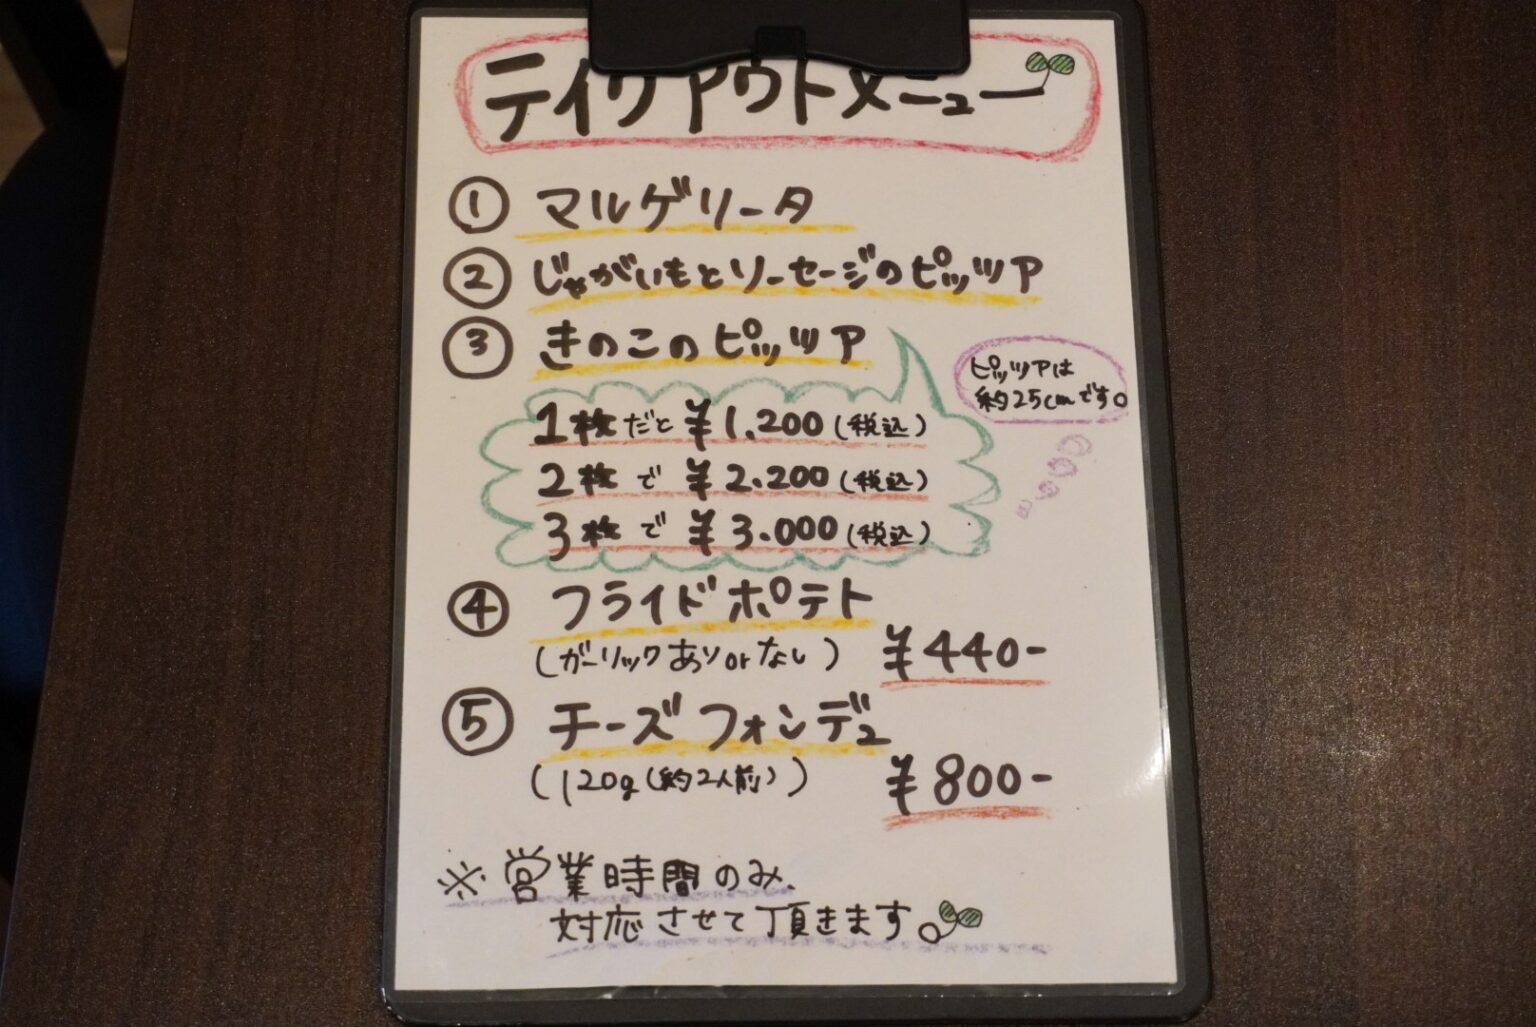 テイクアウトメニュー
① マルゲリータ
② じゃがいもとソーセージのピッツァ
③ きのこのピッツァ
ピッツァは
約25cmです。
1枚だと ¥1.200(税込)
2枚で ¥2.200(税込)
3枚で ¥3.000(税込)
④ フライドポテト
(ガーリックありorなし) ¥440-
⑤ チーズフォンデュ
(120g(約2人前)) ¥800-
※営業時間のみ、
対応させて頂きます。